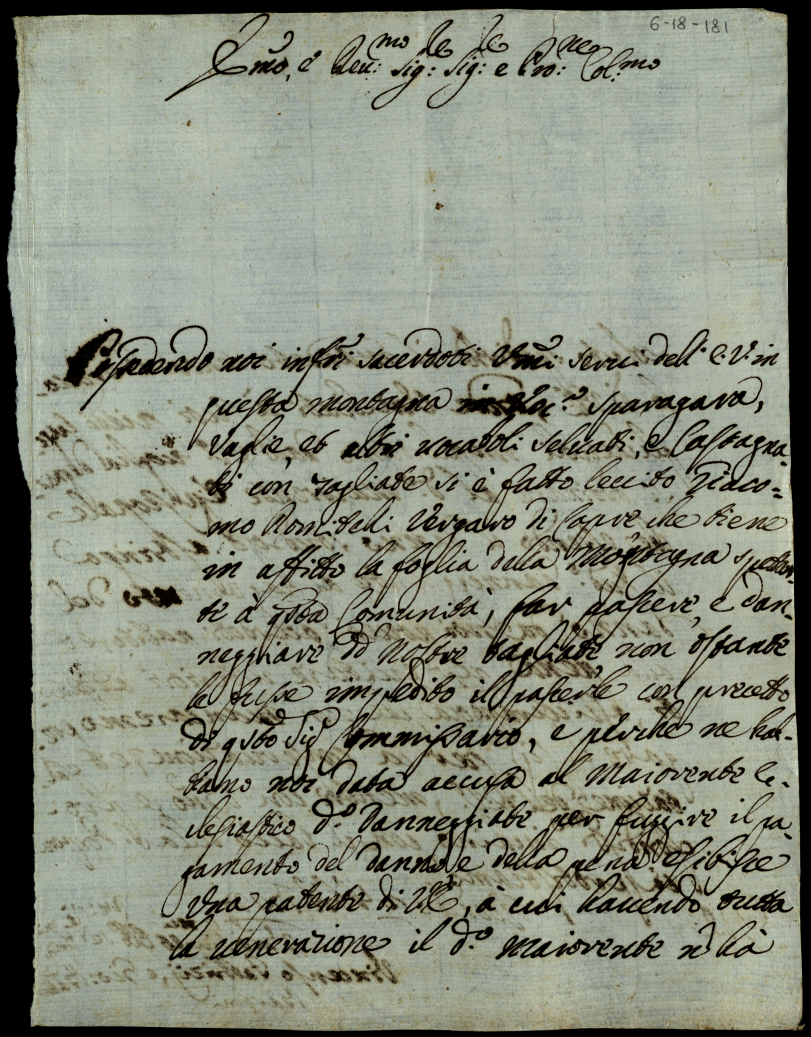 6-18-181
Ill.mo, e Reu:mo Sig:re Sig:re e Pro:ne Col:mo
Possedendo noi infri sacerdoti Vmi serui dell' E. V. in
questa montagna in Voc.o Sparagara,
Vaglie, et altri uocaboli seluati, e Castagna-
ti con tagliate si è fatto leccito Giaco-
mo Romitelli Vergaro di Capre che tiene
in affitto la foglia della Montagna spettan-
te à qsta Comunità, far pascere, e dan-
neggiare dd nostre tagliate, non ostante
le fusse impedito il pascerle con precetto
di qsto Sigr Commissario, e perche ne hab-
biamo noi data accusa al Maiorente Ec-
clesiastico d.o Danneggiate per fuggire il pa-
gamento del danno, e della pena esibisce
vna patente di VE, à cui hauendo tutta
la uenerazione il d.o Maiorente n hà